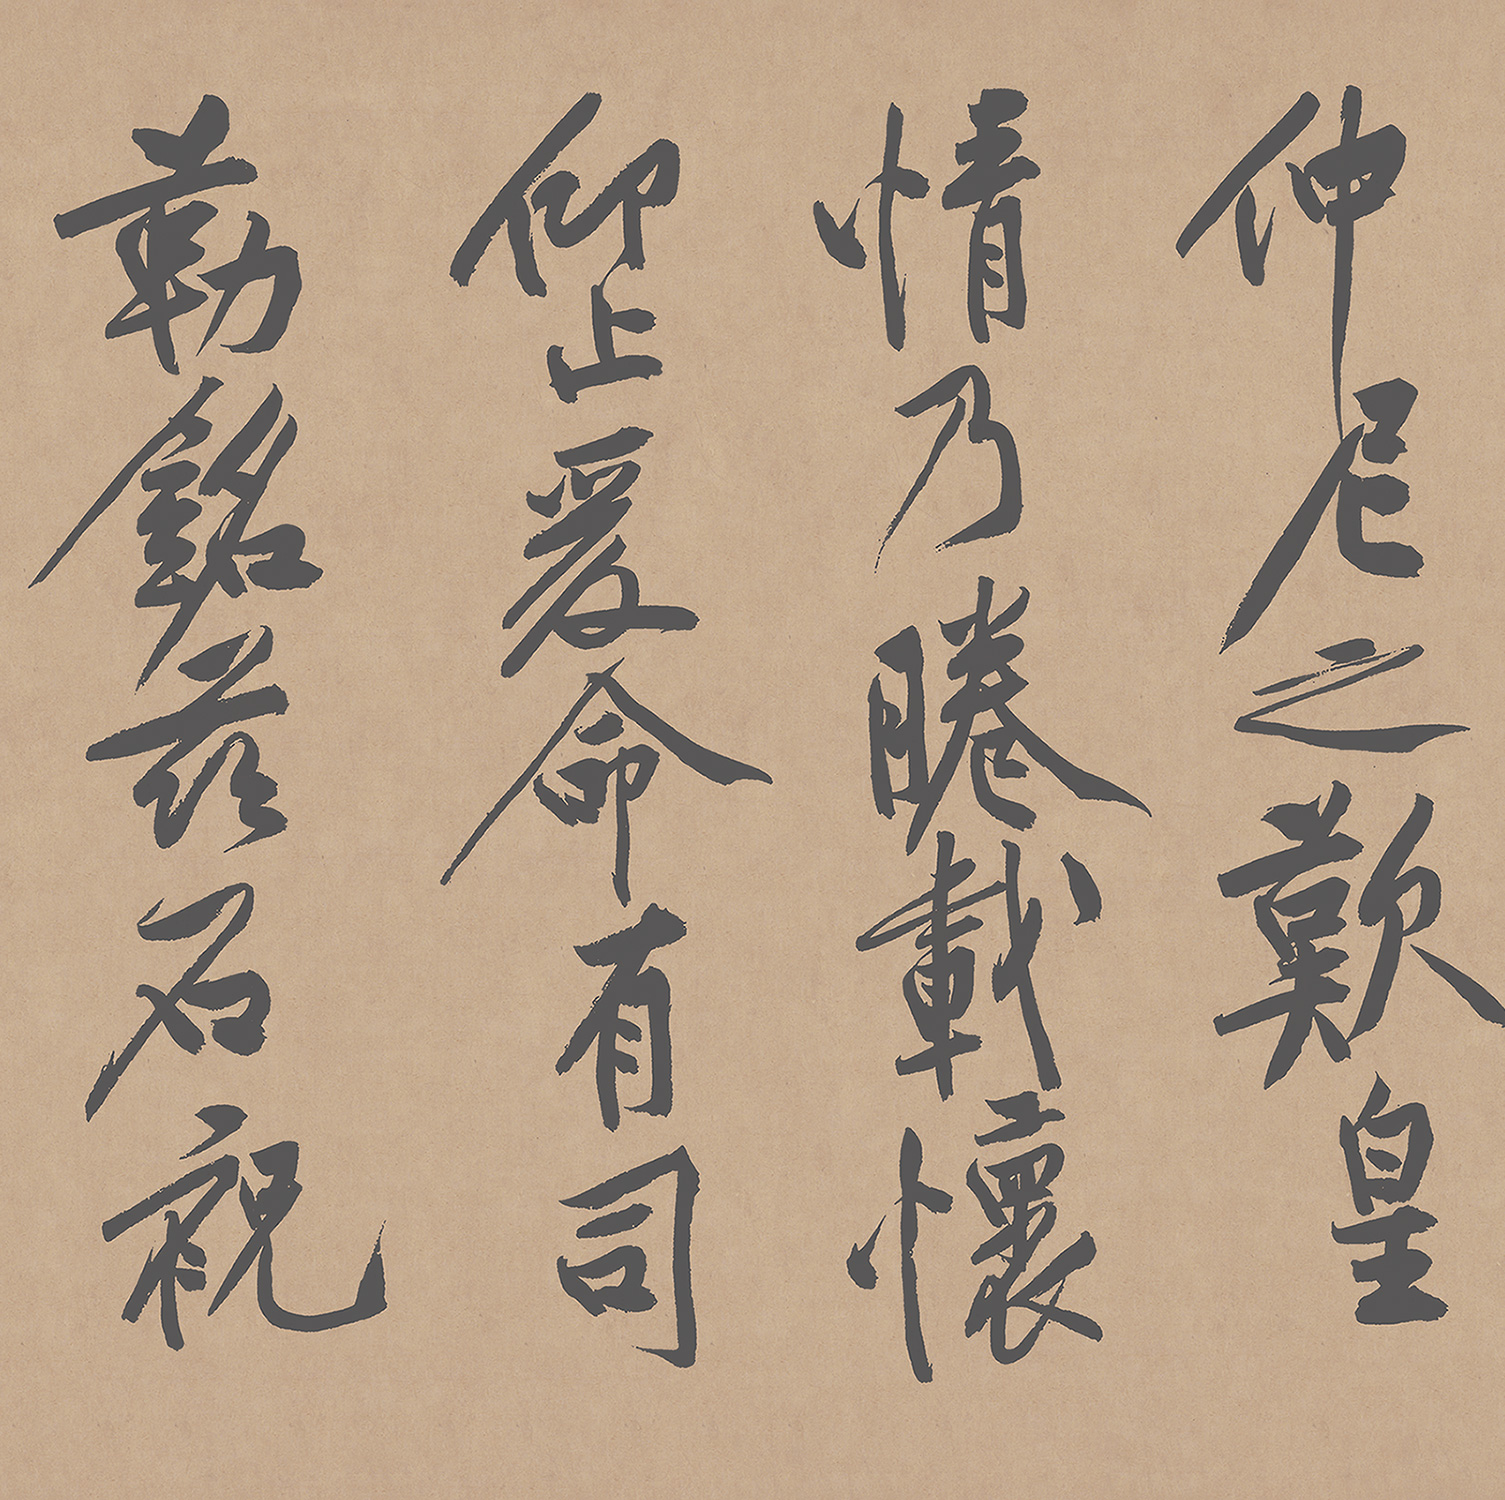 仲尼之歎皇
情乃睠載懷
仰止爰命有司
勒銘茲石祝